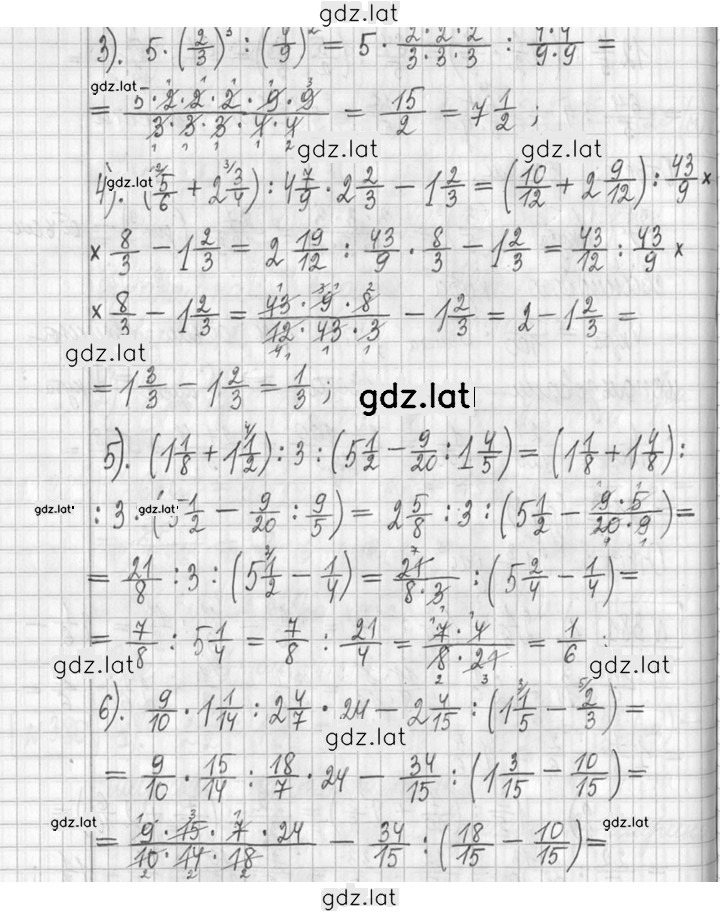 gdz.lat
3). 5 · (2/3)³ : (4/9)² = 5 · 2·2·2/3·3·3 : 4·4/9·9 =
gdz.lat
= 5·2·2·2·9·9/3·3·3·4·4 = 15/2 = 7 1/2 ;
gdz.lat gdz.lat
4). (5/6 + 2 3/4) : 4 7/9 · 2 2/3 − 1 2/3 = (10/12 + 2 9/12) : 43/9 ×
gdz.lat
× 8/3 − 1 2/3 = 2 19/12 : 43/9 · 8/3 − 1 2/3 = 43/12 : 43/9 ×
× 8/3 − 1 2/3 = 43·9·8/12·43·3 − 1 2/3 = 2 − 1 2/3 =
gdz.lat
= 1 3/3 − 1 2/3 = 1/3 ;
gdz.lat
5). (1 1/8 + 1 1/2) : 3 : (5 1/2 − 9/20 : 1 4/5) = (1 1/8 + 1 4/8) :
gdz.lat gdz.lat gdz.lat
: 3 : (5 1/2 − 9/20 : 9/5) = 2 5/8 : 3 : (5 1/2 − 9·5/20·9) =
= 21/8 : 3 : (5 1/2 − 1/4) = 21/8·3 : (5 2/4 − 1/4) =
= 7/8 : 5 1/4 = 7/8 : 21/4 = 7·4/8·21 = 1/6 ;
gdz.lat gdz.lat
6). 9/10 · 1 1/14 : 2 4/7 · 24 − 2 4/15 : (1 1/5 − 2/3) =
gdz.lat
= 9/10 · 15/14 : 18/7 · 24 − 34/15 : (1 3/15 − 10/15) =
gdz.lat gdz.lat
= 9·15·7·24/10·14·18 − 34/15 : (18/15 − 10/15) =
gdz.lat